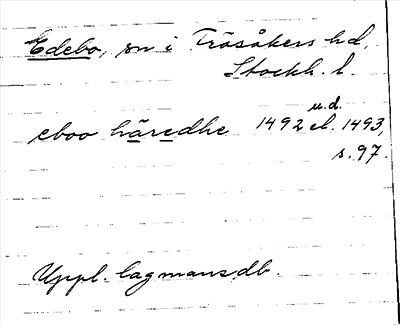 Edebo, sn i Frösåkers hd,
Stockh. l.
eboo häredhe 1492 u.d. el. 1493,
s. 97.
Uppl. lagmansdb.